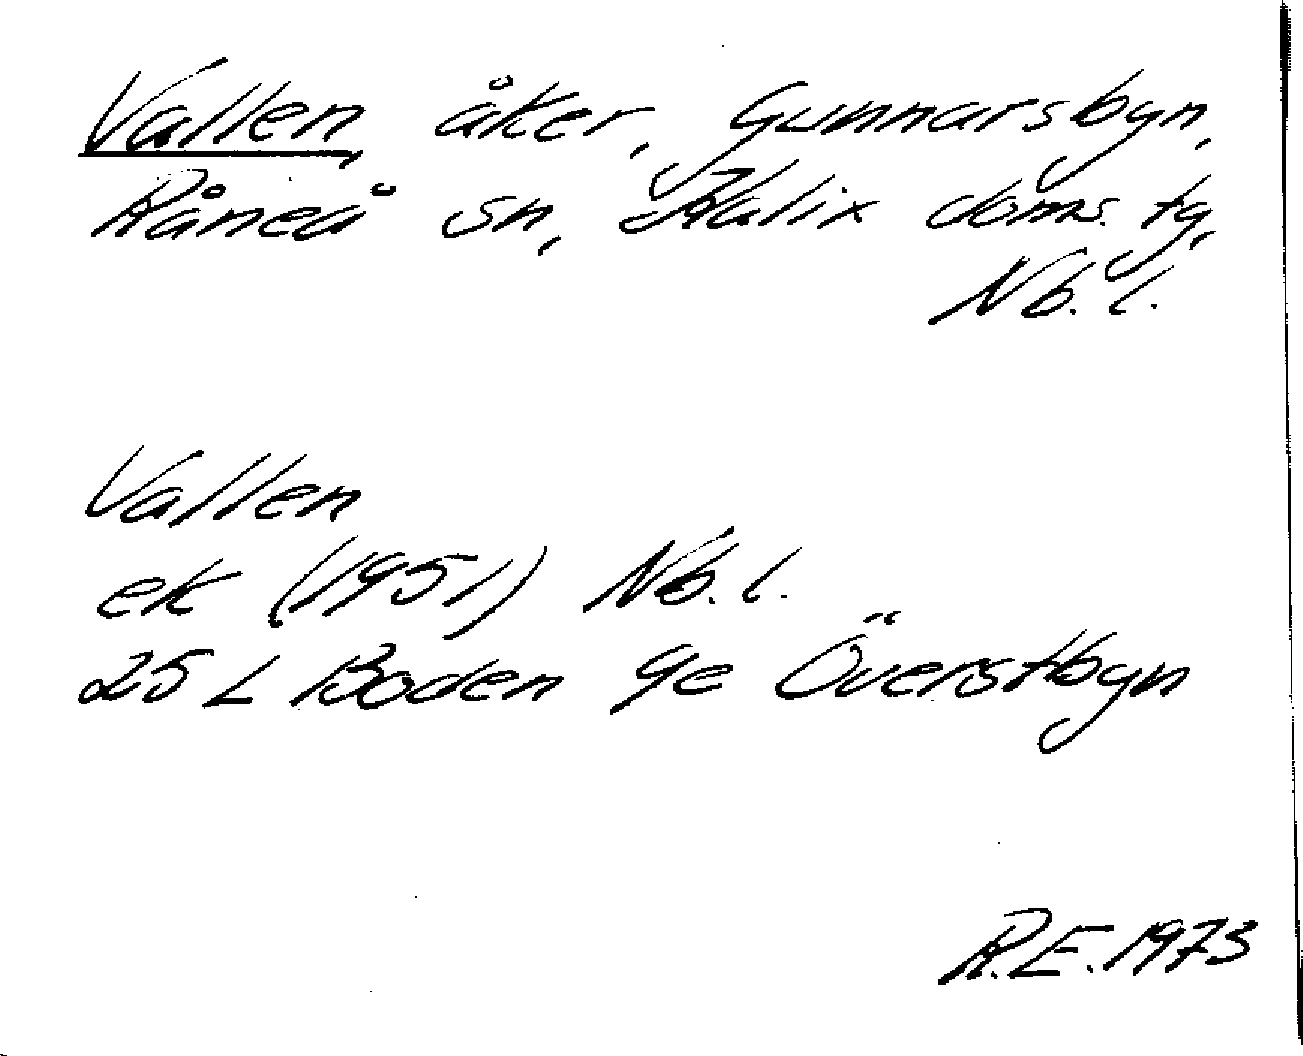 Vallen, åker, Gunnarsbyn,
Råneå sn, Kalix doms. tg,
Nb. l.
Vallen
ek (1951) Nb. l.
25 L Boden 9e Överstbyn
R.E. 1973